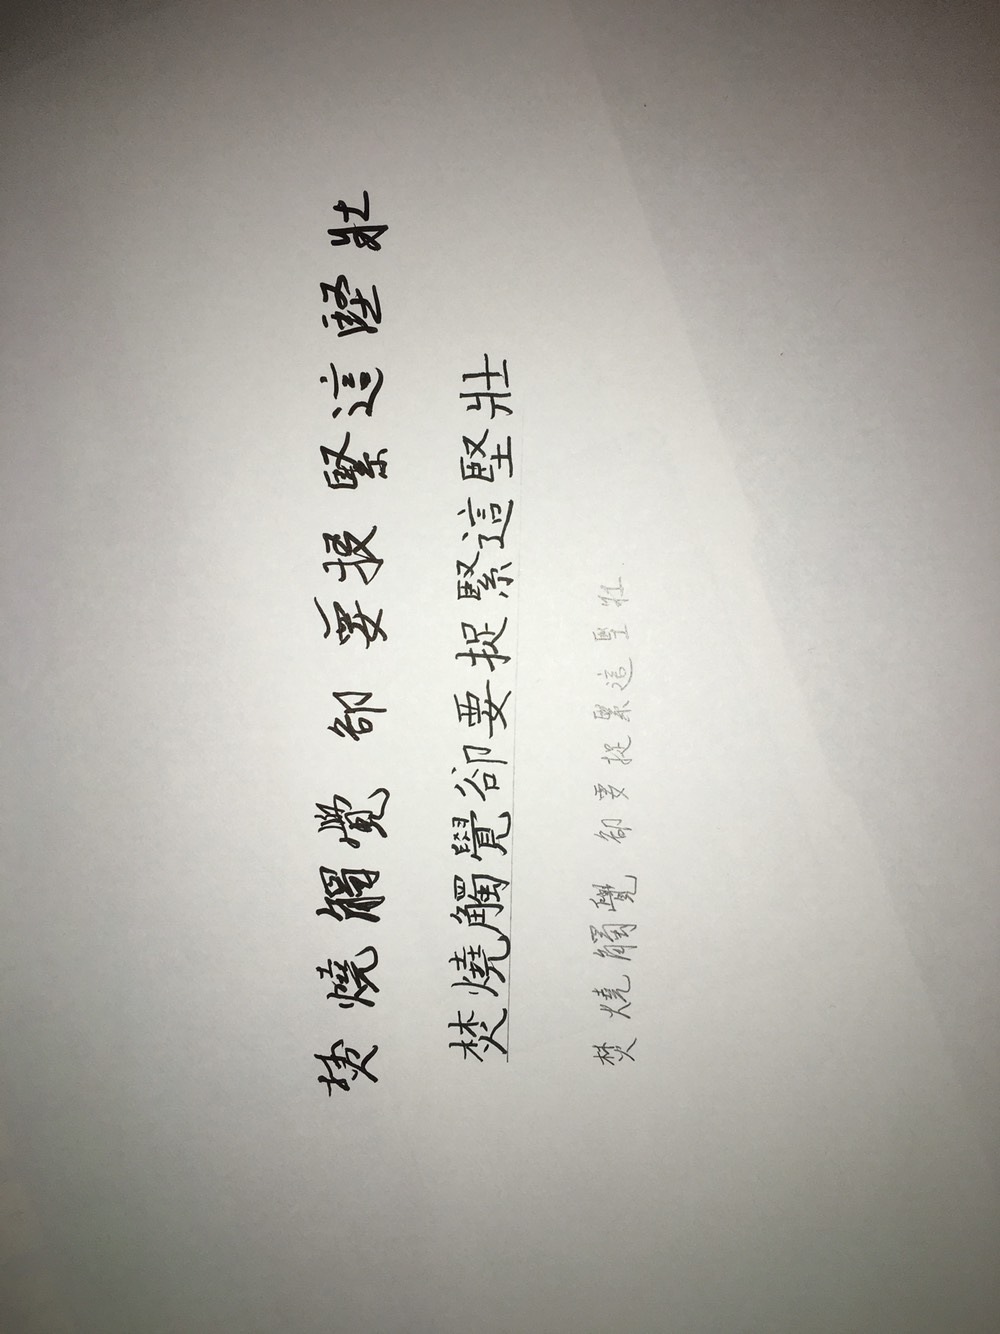 焚燒觸覺 卻要捉緊這堅壯
焚燒觸覺卻要捉緊這堅壯
焚燒觸覺 卻要捉緊這堅壯